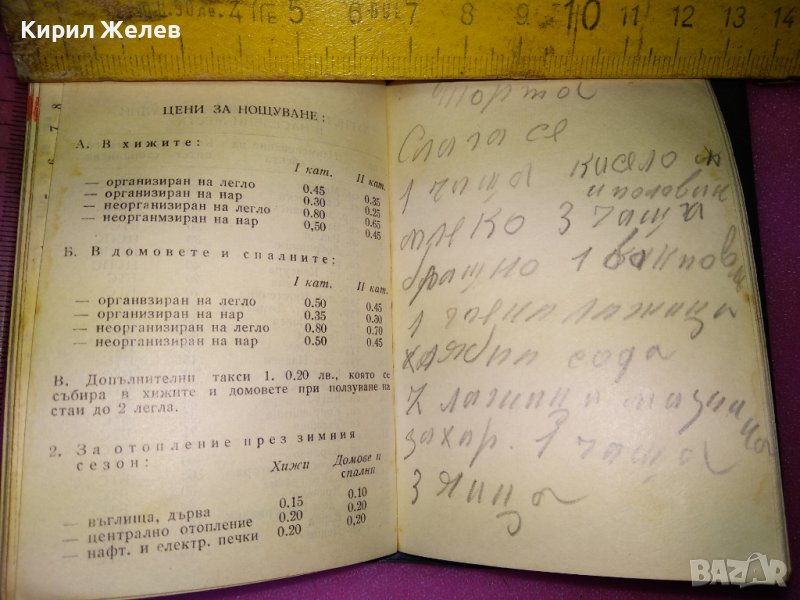 Кирил Желев
4 5 6 7 8 9 10 11 12 13 14
6 7 8
ЦЕНИ ЗА НОЩУВАНЕ:
А. В хижите:
I кат. II кат.
— организиран на легло 0.45 0.35
— организиран на нар 0.30 0.25
— неорганизиран на легло 0.80 0.65
— неорганмзиран на нар 0,50 0.45
Б. В домовете и спалните:
I кат. II кат.
— органвзиран на легло 0.50 0.45
— организиран на нар 0.35 0.30
— неорганизиран на легло 0.80 0.70
— неорганизиран на нар 0.50 0.45
В. Допълнителни такси 1. 0.20 лв., която се
събира в хижите и домовете при ползуване на
стаи до 2 легла.
2. За отопление през зимния
сезон:
Хижи Домове и
спални
— въглища, дърва 0.15 0.10
— централно отопление 0.20 0.20
— нафт. и електр. печки 0.20 0.20
Торта
Слага се
1 чаша кисело м
и половин
мреко 3 чаша
брашно 1
1 чаена лажица
хлябна сода
2 лажици
захар. 1 чаша
3 яйца
BAZAR